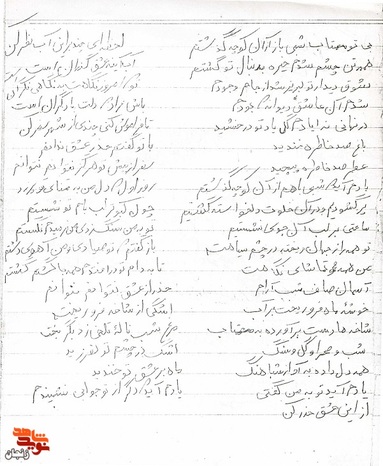 بی تو مهتاب شبی باز از آن کوچه گذشتم
همه تن چشم شدم خیره به دنبال تو گشتم
شوق دیدار تو لبریز شد از جام وجودم
شدم آن عاشق دیوانه که بودم
در نهانخانه جانم گل یاد تو درخشید
باغ صد خاطره خندید
عطر صد خاطره پیچید
یادم آید که شبی باهم از آن کوچه گذشتیم
پر گشودیم و در آن خلوت دلخواسته گشتیم
ساعتی بر لب آن جوی نشستیم
تو همه راز جهان ریخته در چشم سیاهت
من همه محو تماشای نگاهت
آسمان صاف شب آرام
خوشه ماه فرو ریخته در آب
شاخه ها دست برآورده به مهتاب
شب و صحرا و گل و سنگ
همه دل داده به آواز شباهنگ
یادم آید تو به من گفتی
از این عشق حذر کن
لحظه ای چند بر این آب نظر کن
آب آئینه عشق گذران است
تو که امروز نگاهت به نگاهی نگران است
باش فردا که دلت با دگران است
تا فراموش کنی چندی از این شهر سفر کن
با تو گفتم حذر از عشق ندانم
سفر از پیش تو هرگز نتوانم نتوانم
روز اول که دل من به تمنای تو پر زد
چون کبوتر لب بام تو نشستم
تو به من سنگ زدی من نه رمیدم نه گسستم
باز گفتم که تو صیادی و من آهوی دشتم
تا به دام تو درافتم همه جا گشتم و گشتم
حذر از عشق ندانم نتوانم
اشکی از شاخه فرو ریخت
مرغ شب ناله تلخی زد و بگریخت
اشک در چشم تو لغزید
ماه بر عشق تو خندید
یادم آید که دگر از تو جوابی نشنیدم
نوید شاهد